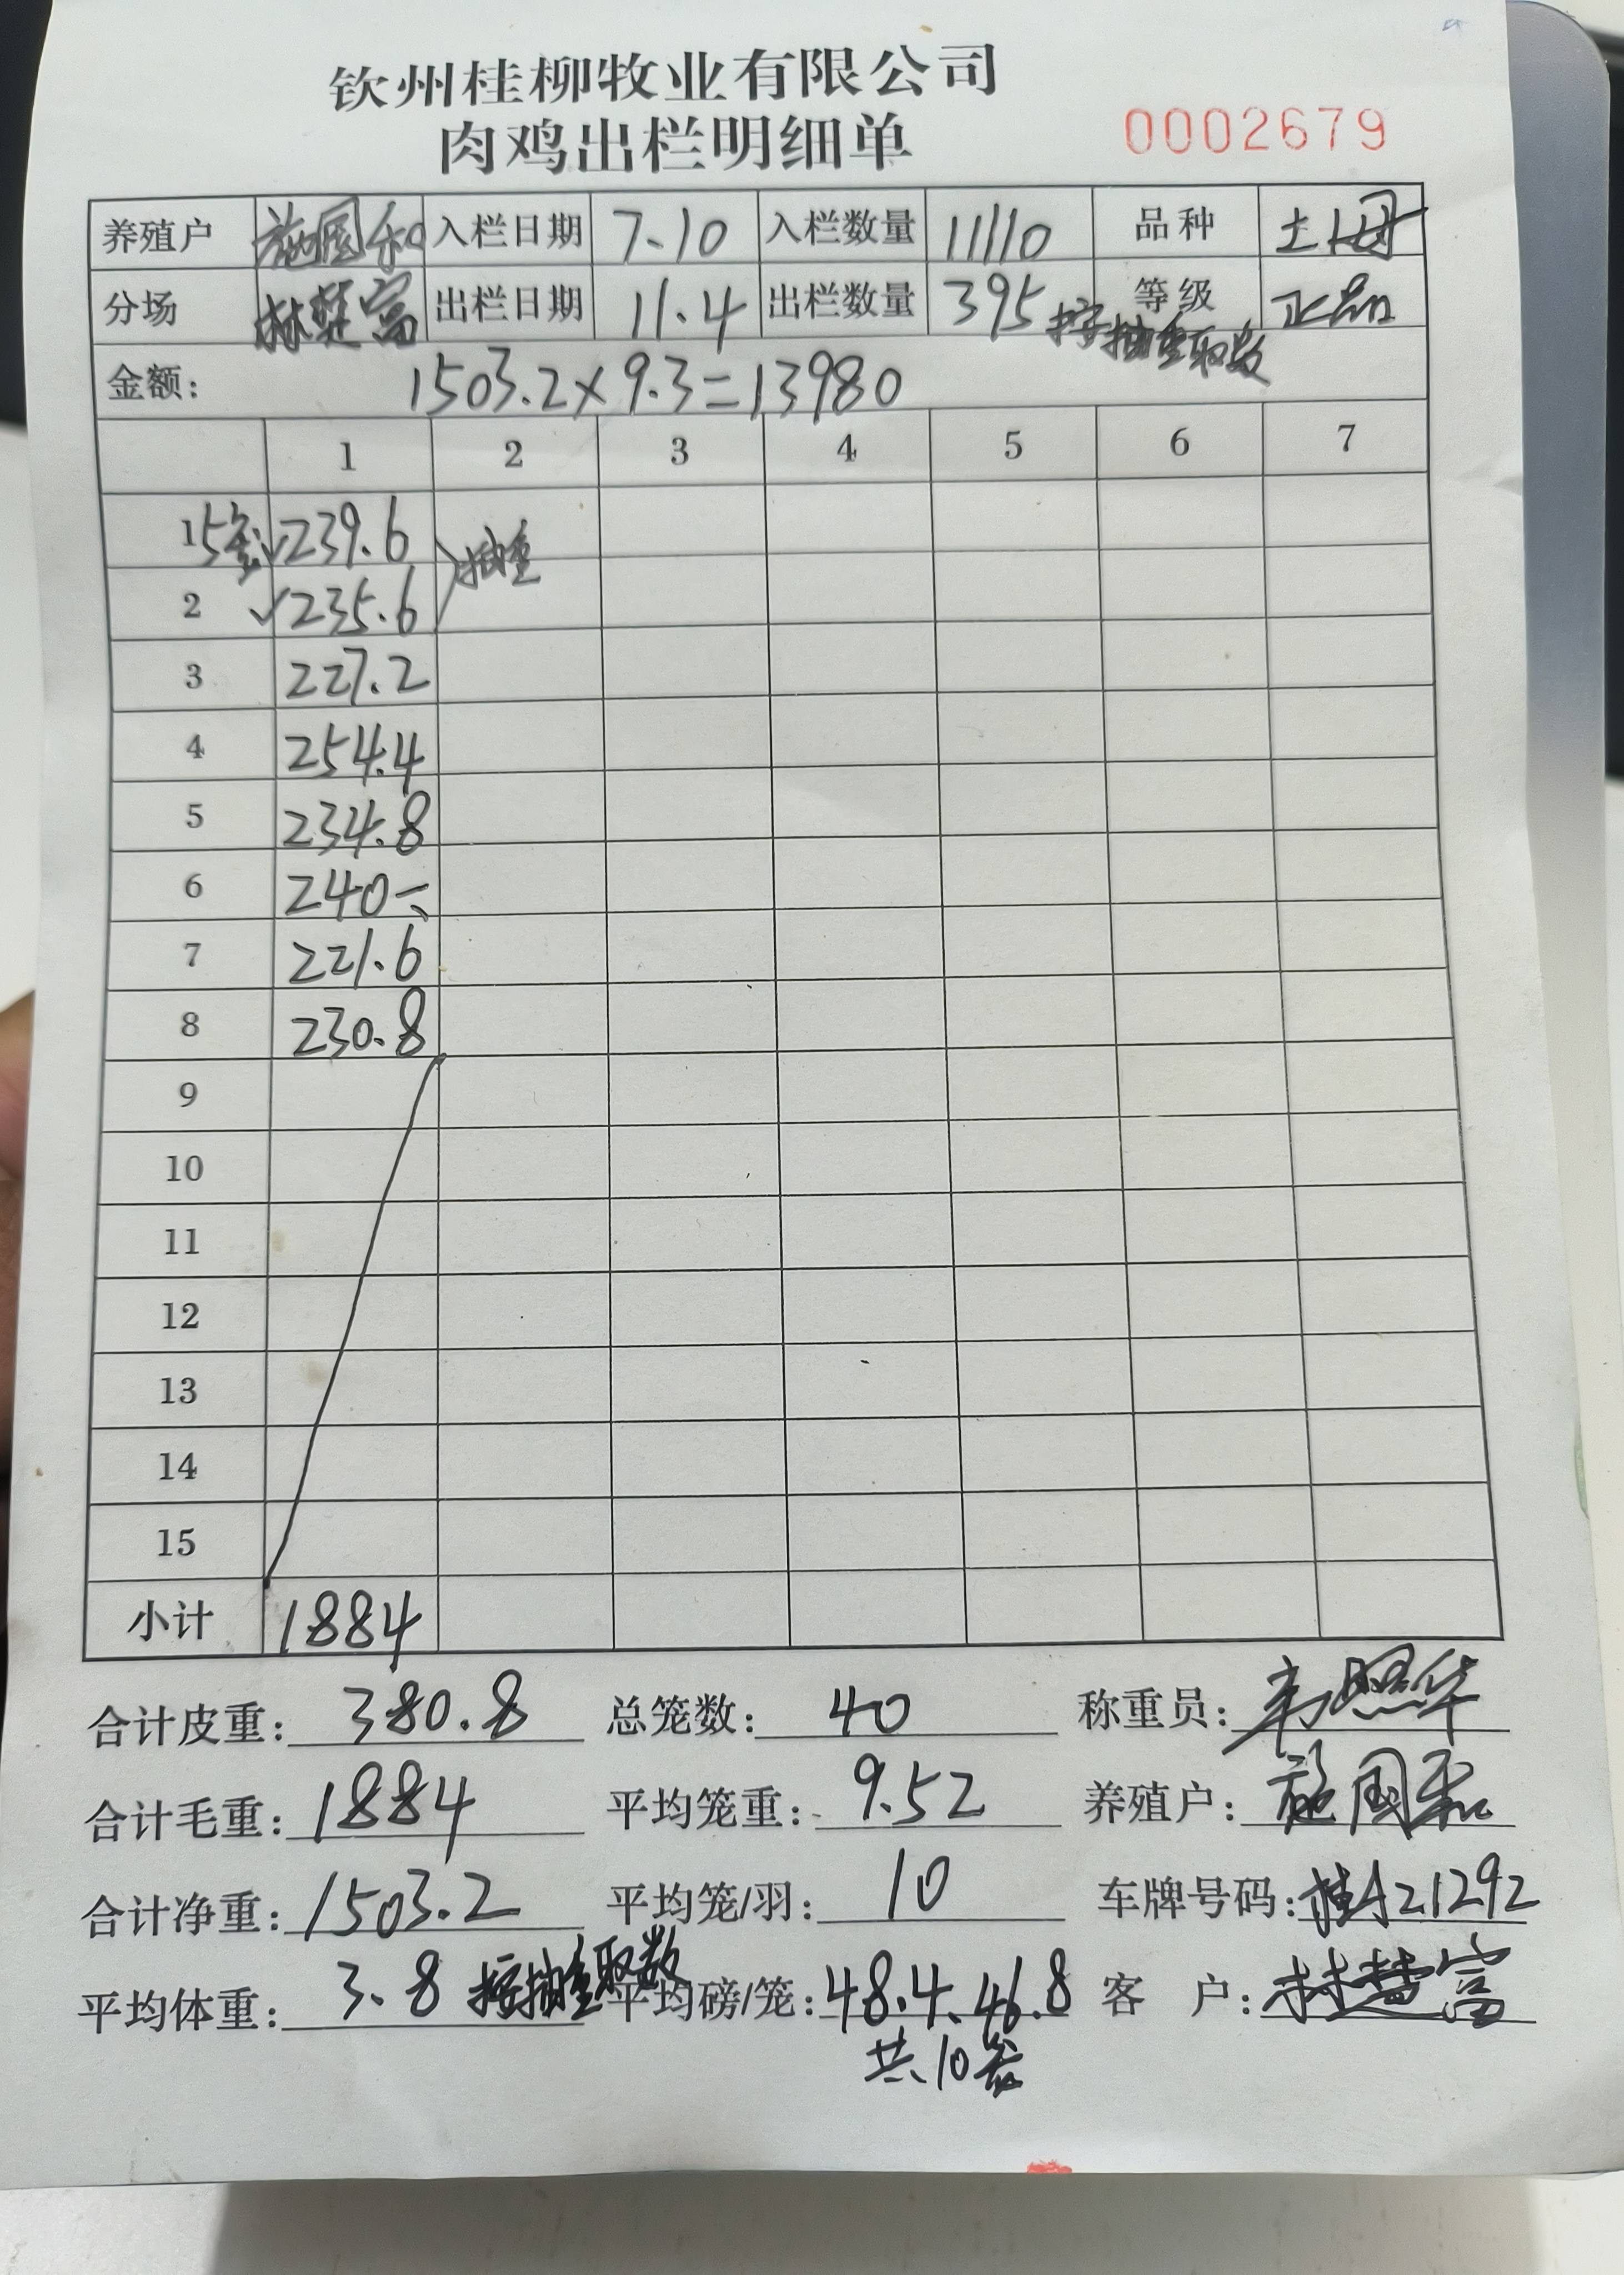 钦州桂柳牧业有限公司
肉鸡出栏明细单
0002679
养殖户 施国和 入栏日期 7.10 入栏数量 11110 品种 土母
分场 林楚富 出栏日期 11.4 出栏数量 395 按抽重取数 等级 正品
金额: 1503.2×9.3=13980
1 2 3 4 5 6 7
1 5笼 √239.6 抽重
2 √235.6
3 227.2
4 254.4
5 234.8
6 240
7 221.6
8 230.8
9
10
11
12
13
14
15
小计 1884
合计皮重: 380.8 总笼数: 40 称重员:
合计毛重: 1884 平均笼重: 9.52 养殖户: 施国和
合计净重: 1503.2 平均笼/羽: 10 车牌号码: 桂A21292
平均体重: 3.8 按抽重取数 平均磅/笼: 48.4.46.8 客户:
共10笼